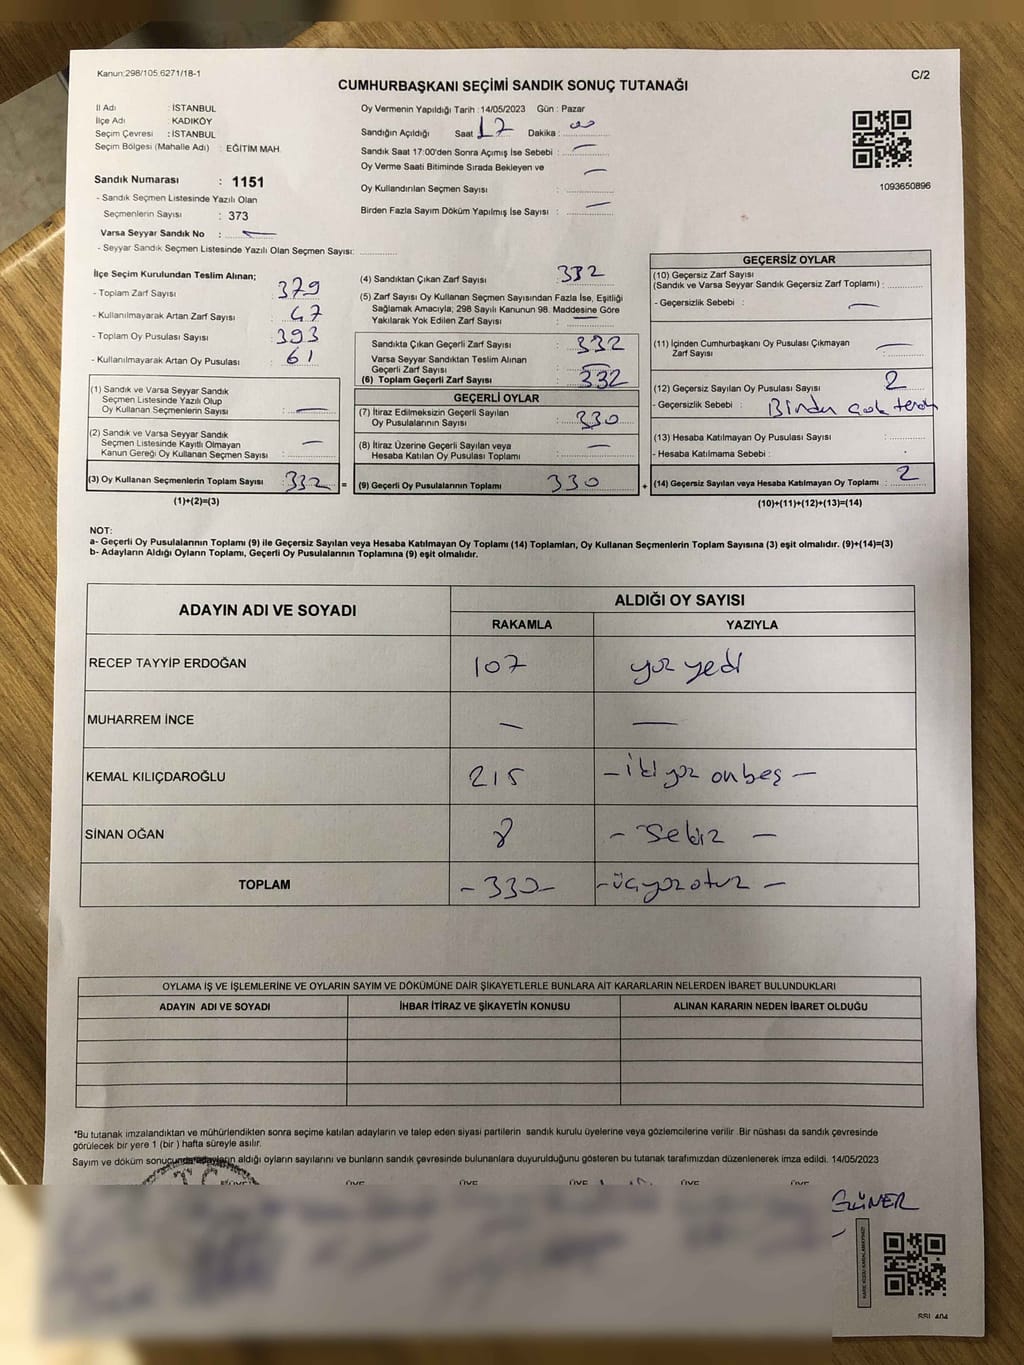 Kanun:298/105,6271/18-1
C/2
CUMHURBAŞKANI SEÇİMİ SANDIK SONUÇ TUTANAĞI
İl Adı : İSTANBUL
İlçe Adı : KADIKÖY
Seçim Çevresi : İSTANBUL
Seçim Bölgesi (Mahalle Adı) : EĞİTİM MAH.
Sandık Numarası : 1151
- Sandık Seçmen Listesinde Yazılı Olan
Seçmenlerin Sayısı : 373
Varsa Seyyar Sandık No : —
- Seyyar Sandık Seçmen Listesinde Yazılı Olan Seçmen Sayısı:
Oy Vermenin Yapıldığı Tarih : 14/05/2023 Gün : Pazar
Sandığın Açıldığı Saat 17 Dakika : 00
Sandık Saat 17:00'den Sonra Açımış İse Sebebi : —
Oy Verme Saati Bitiminde Sırada Bekleyen ve —
Oy Kullandırılan Seçmen Sayısı :
Birden Fazla Sayım Döküm Yapılmış İse Sayısı : —
1093650896
İlçe Seçim Kurulundan Teslim Alınan;
- Toplam Zarf Sayısı : 379
- Kullanılmayarak Artan Zarf Sayısı : 47
- Toplam Oy Pusulası Sayısı : 393
- Kullanılmayarak Artan Oy Pusulası : 61
(1) Sandık ve Varsa Seyyar Sandık
Seçmen Listesinde Yazılı Olup
Oy Kullanan Seçmenlerin Sayısı : —
(2) Sandık ve Varsa Seyyar Sandık
Seçmen Listesinde Kayıtlı Olmayan
Kanun Gereği Oy Kullanan Seçmen Sayısı : —
(3) Oy Kullanan Seçmenlerin Toplam Sayısı : 332 =
(1)+(2)=(3)
(4) Sandıktan Çıkan Zarf Sayısı : 332
(5) Zarf Sayısı Oy Kullanan Seçmen Sayısından Fazla İse, Eşitliği
Sağlamak Amacıyla; 298 Sayılı Kanunun 98. Maddesine Göre
Yakılarak Yok Edilen Zarf Sayısı : —
Sandıkta Çıkan Geçerli Zarf Sayısı : 332
Varsa Seyyar Sandıktan Teslim Alınan
Geçerli Zarf Sayısı : —
(6) Toplam Geçerli Zarf Sayısı : 332
GEÇERLİ OYLAR
(7) İtiraz Edilmeksizin Geçerli Sayılan
Oy Pusulalarının Sayısı : 330
(8) İtiraz Üzerine Geçerli Sayılan veya
Hesaba Katılan Oy Pusulası Toplamı : —
(9) Geçerli Oy Pusulalarının Toplamı 330 +
GEÇERSİZ OYLAR
(10) Geçersiz Zarf Sayısı
(Sandık ve Varsa Seyyar Sandık Geçersiz Zarf Toplamı) :
- Geçersizlik Sebebi : —
(11) İçinden Cumhurbaşkanı Oy Pusulası Çıkmayan
Zarf Sayısı : —
(12) Geçersiz Sayılan Oy Pusulası Sayısı : 2
- Geçersizlik Sebebi : Birden çok tercih
(13) Hesaba Katılmayan Oy Pusulası Sayısı :
- Hesaba Katılmama Sebebi :
(14) Geçersiz Sayılan veya Hesaba Katılmayan Oy Toplamı : 2
(10)+(11)+(12)+(13)=(14)
NOT:
a- Geçerli Oy Pusulalarının Toplamı (9) ile Geçersiz Sayılan veya Hesaba Katılmayan Oy Toplamı (14) Toplamları, Oy Kullanan Seçmenlerin Toplam Sayısına (3) eşit olmalıdır. (9)+(14)=(3)
b- Adayların Aldığı Oyların Toplamı, Geçerli Oy Pusulalarının Toplamına (9) eşit olmalıdır.
ADAYIN ADI VE SOYADI
ALDIĞI OY SAYISI
RAKAMLA YAZIYLA
RECEP TAYYİP ERDOĞAN 107 yüz yedi
MUHARREM İNCE — —
KEMAL KILIÇDAROĞLU 215 - iki yüz onbeş -
SİNAN OĞAN 8 - Sekiz -
TOPLAM - 330 - - üçyüzotuz -
OYLAMA İŞ VE İŞLEMLERİNE VE OYLARIN SAYIM VE DÖKÜMÜNE DAİR ŞİKAYETLERLE BUNLARA AİT KARARLARIN NELERDEN İBARET BULUNDUKLARI
ADAYIN ADI VE SOYADI İHBAR İTİRAZ VE ŞİKAYETİN KONUSU ALINAN KARARIN NEDEN İBARET OLDUĞU
*Bu tutanak imzalandıktan ve mühürlendikten sonra seçime katılan adayların ve talep eden siyasi partilerin sandık kurulu üyelerine veya gözlemcilerine verilir. Bir nüshası da sandık çevresinde
görülecek bir yere 1 (bir ) hafta süreyle asılır.
Sayım ve döküm sonucunda adayların aldığı oyların sayılarını ve bunların sandık çevresinde bulunanlara duyurulduğunu gösteren bu tutanak tarafımızdan düzenlenerek imza edildi. 14/05/2023
T.C.
ÜYE ÜYE ÜYE ÜYE ÜYE ÜYE
GÜNER